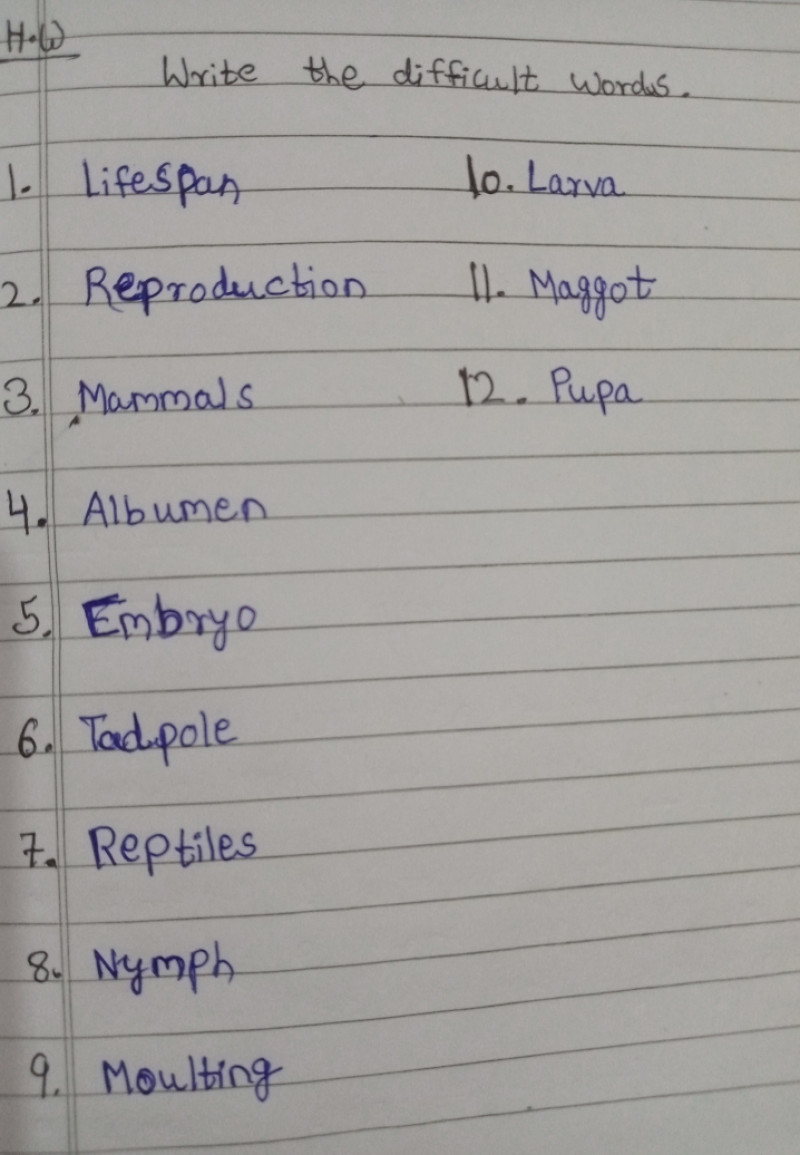 H.W
Write the difficult words.
1. Lifespan
2. Reproduction
3. Mammals
4. Albumen
5. Embryo
6. Tadpole
7. Reptiles
8. Nymph
9. Moulting
10. Larva
11. Maggot
12. Pupa